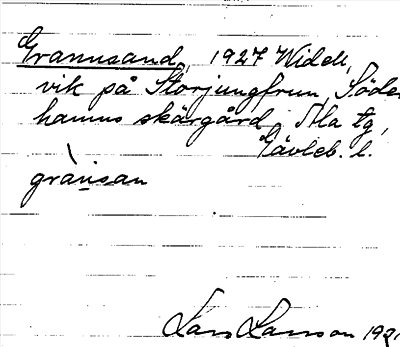 Grannsand, 1927 Widell,
vik på Storjungfrun, Söder
hamns skärgård, Ala tg,
Gävleb. l.
grànsan
Lars Larsson 192